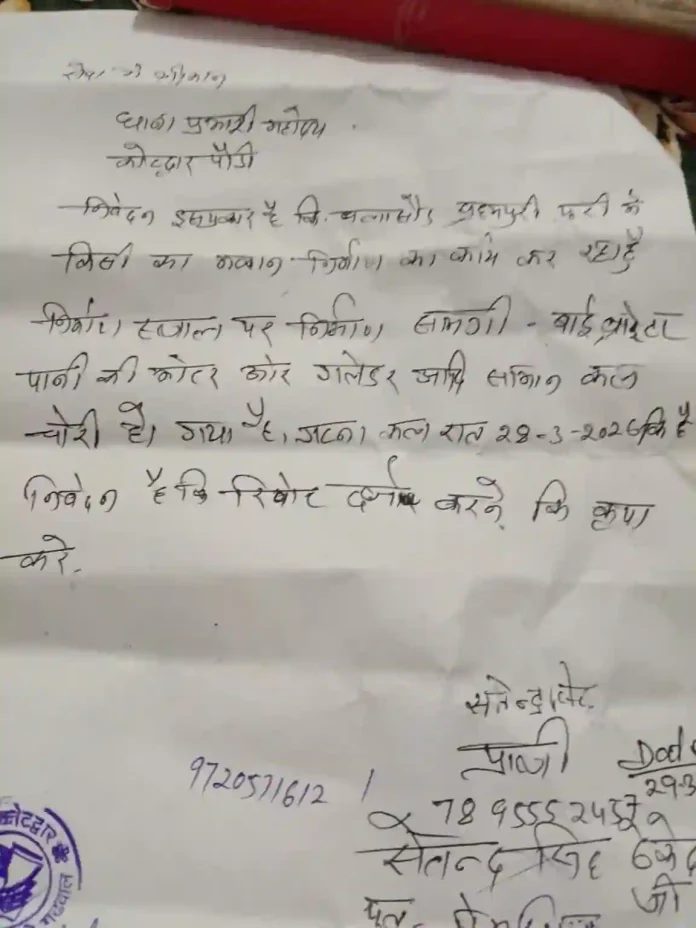 सेवा में श्रीमान
थाना प्रभारी महोदय
कोटद्वार पौडी
निवेदन इसप्रकार है कि बलासौड ब्रहमपुरी में
किसी का मकान निर्माण का काम कर रहा हुँ
निर्माण स्थान पर निर्माण सामग्री - बाईब्रेटर
पानी की मोटर और गलेंडर आदि सामान कल
चोरी हो गया है। घटना कल रात 28-3-2026 कि है
निवेदन है कि रिपोट दर्ज करने कि कृपा
करे.
प्राथी
29-3
9720571612
सतेन्द्र सिंह
जी
कोटद्वार
गढवाल